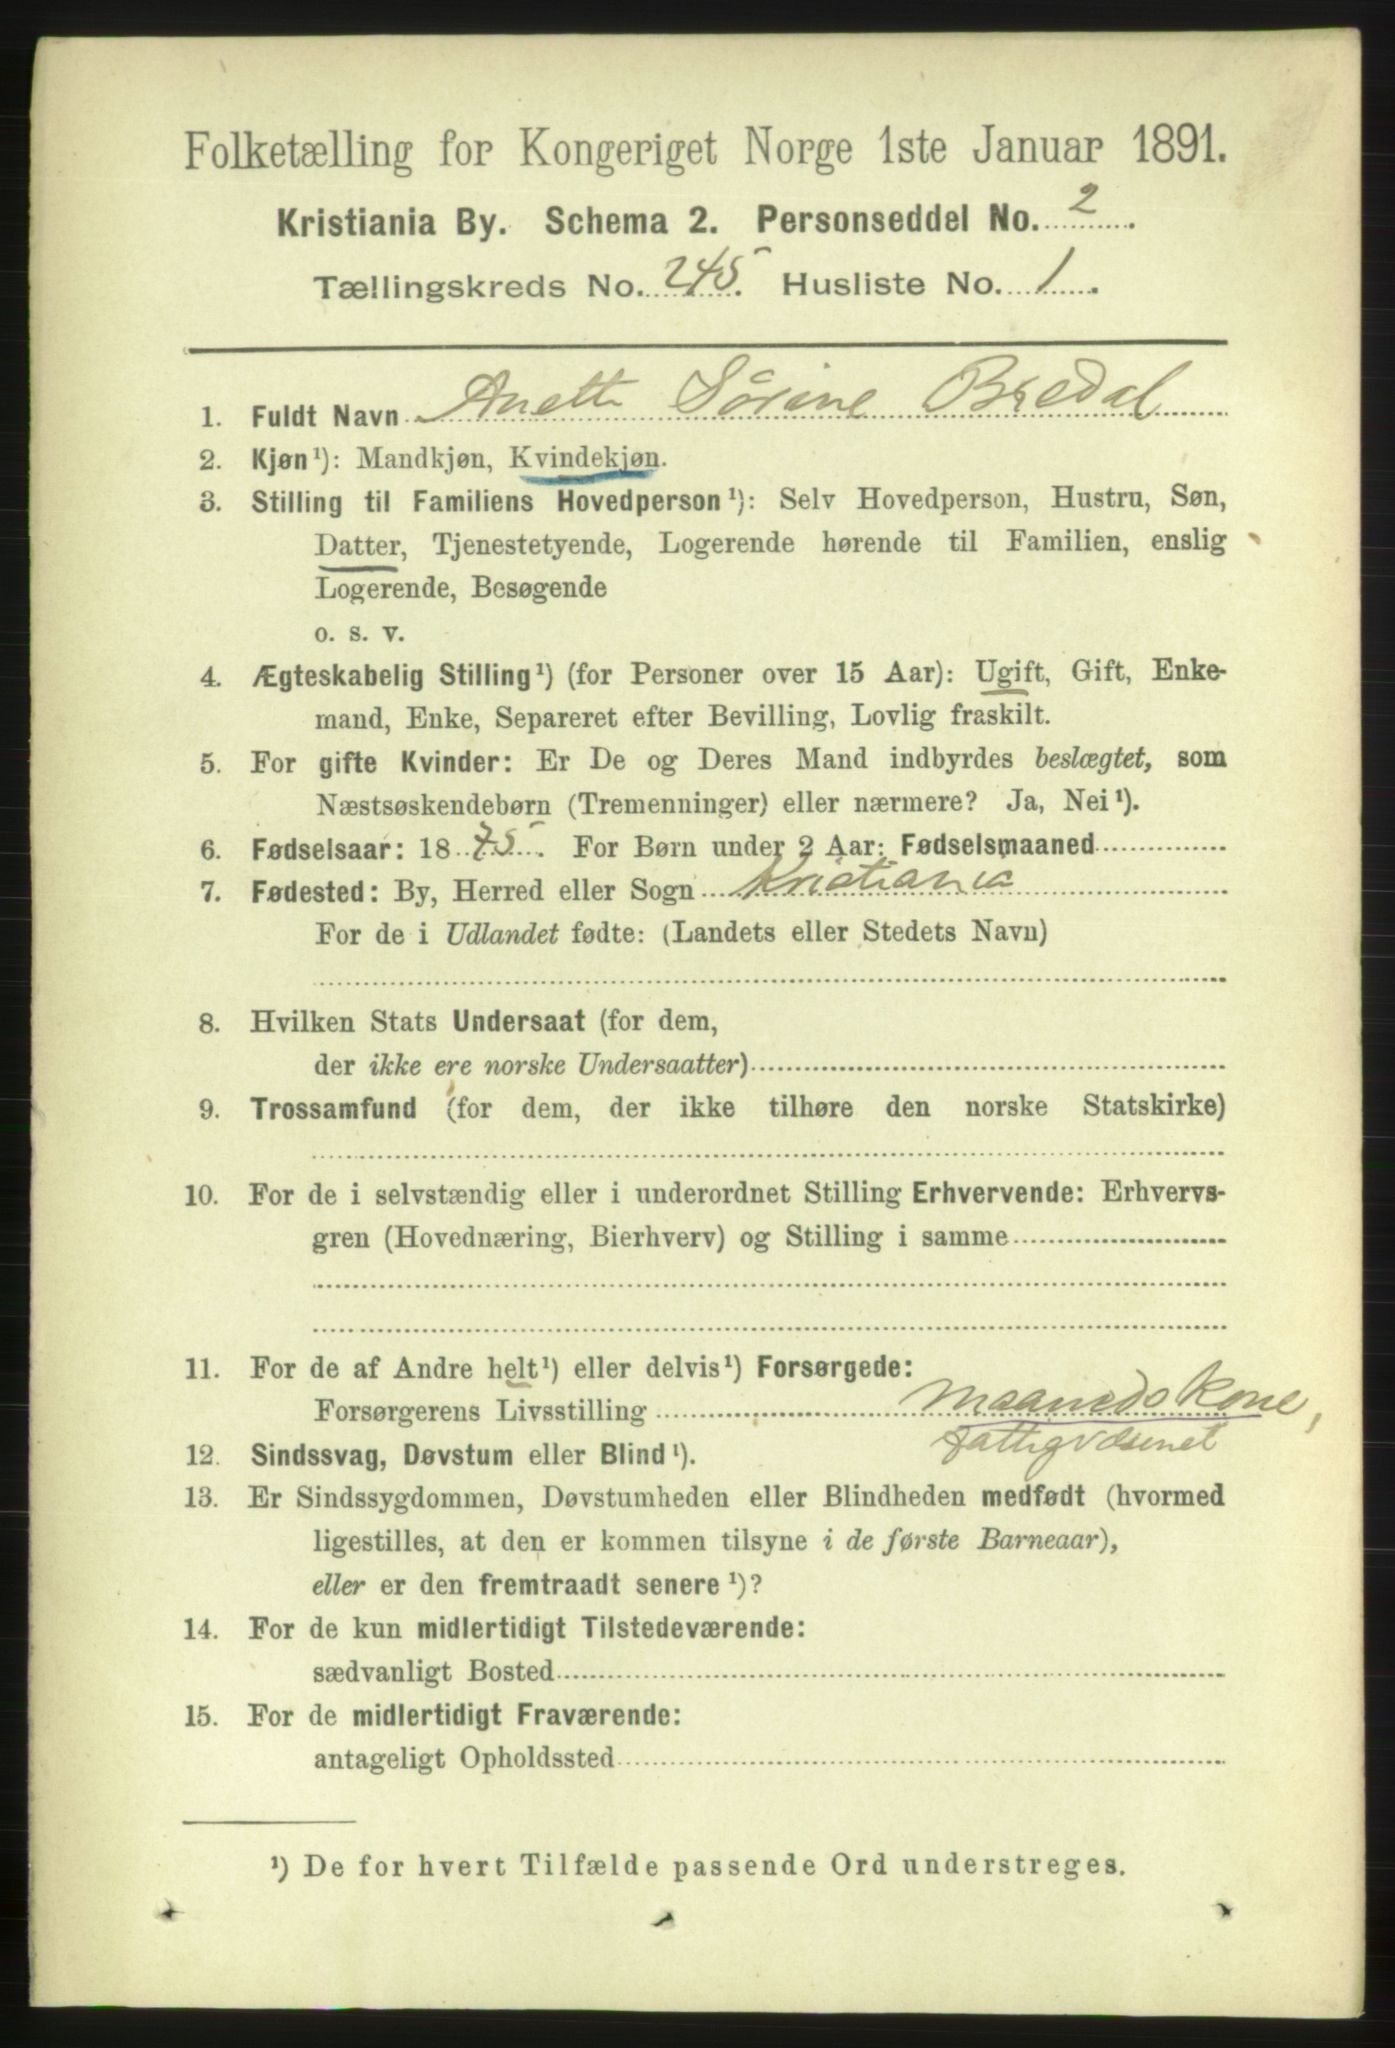 Folketælling for Kongeriget Norge 1ste Januar 1891.
Kristiania By. Schema 2. Personseddel No. 2.
Tællingskreds No. 245. Husliste No. 1.
1. Fuldt Navn Anette Sørine Bredal
2. Kjøn¹): Mandkjøn, Kvindekjøn.
3. Stilling til Familiens Hovedperson¹): Selv Hovedperson, Hustru, Søn,
Datter, Tjenestetyende, Logerende hørende til Familien, enslig
Logerende, Besøgende
o. s. v.
4. Ægteskabelig Stilling¹) (for Personer over 15 Aar): Ugift, Gift, Enke-
mand, Enke, Separeret efter Bevilling, Lovlig fraskilt.
5. For gifte Kvinder: Er De og Deres Mand indbyrdes beslægtet, som
Næstsøskendebørn (Tremenninger) eller nærmere? Ja, Nei¹).
6. Fødselsaar: 1875. For Børn under 2 Aar: Fødselsmaaned
7. Fødested: By, Herred eller Sogn Kristiania
For de i Udlandet fødte: (Landets eller Stedets Navn)
8. Hvilken Stats Undersaat (for dem,
der ikke ere norske Undersaatter)
9. Trossamfund (for dem, der ikke tilhøre den norske Statskirke)
10. For de i selvstændig eller i underordnet Stilling Erhvervende: Erhvervs-
gren (Hovednæring, Bierhverv) og Stilling i samme
11. For de af Andre helt¹) eller delvis¹) Forsørgede:
Forsørgerens Livsstilling Maaneds Kone,
fattigvæsenet
12. Sindssvag, Døvstum eller Blind¹).
13. Er Sindssygdommen, Døvstumheden eller Blindheden medfødt (hvormed
ligestilles, at den er kommen tilsyne i de første Barneaar),
eller er den fremtraadt senere¹)?
14. For de kun midlertidigt Tilstedeværende:
sædvanligt Bosted
15. For de midlertidigt Fraværende:
antageligt Opholdssted
¹) De for hvert Tilfælde passende Ord understreges.